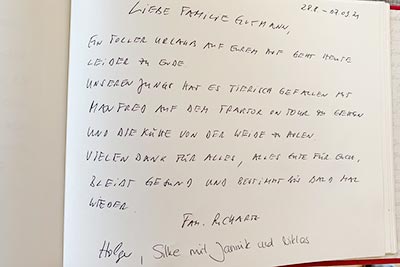 29.8. - 07.09.21
LIEBE FAMILIE GUTMANN,
EIN TOLLER URLAUB AUF EUREM HOF GEHT HEUTE
LEIDER ZU ENDE
UNSEREN JUNGS HAT ES TIERISCH GEFALLEN MIT
MANFRED AUF DEM TRAKTOR ON TOUR ZU GEHEN
UND DIE KÜHE VON DER WEIDE ZU HOLEN
VIELEN DANK FÜR ALLES, ALLES GUTE FÜR EUCH,
BLEIBT GESUND UND BESTIMMT BIS BALD MAL
WIEDER.
FAM. RICHARTZ
Holger, Silke mit Jannik und Niklas